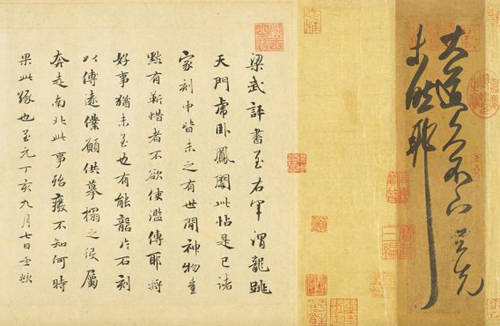 大道久不下与先
未然耶
梁武評書至右軍謂龍跳
天門虎臥鳳闕此帖是已諸
家刻中皆未之有世間神物
有靳惜者不欲使濫傳耶將
好事猶未至也有能礱片石刻
以傳遠僕願供摹搨之役屬
奔走南北此事殆廢不知何時
果此緣也至元丁亥九月七日孟頫